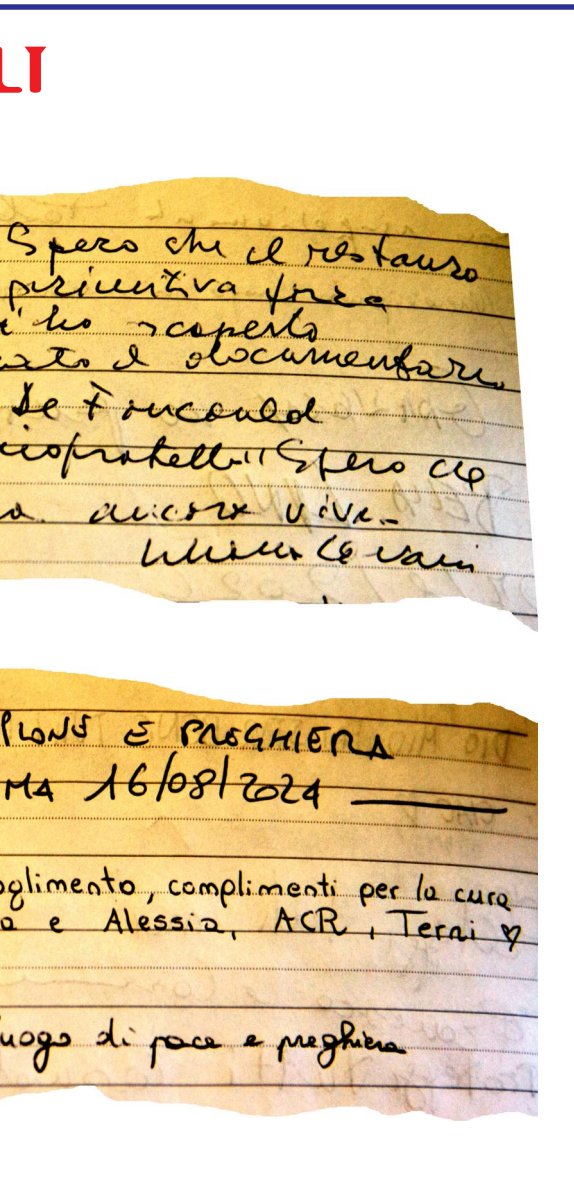 LI
Spero che il restauro
primitiva forza
i ho scoperto
il documentario
de Foucauld
Spero che
ancora viva -
E PREGHIERA
MA 16/08/2024
oglimento, complimenti per la cura
a e Alessia, ACR, Terni ♡
uogo di pace e preghiera